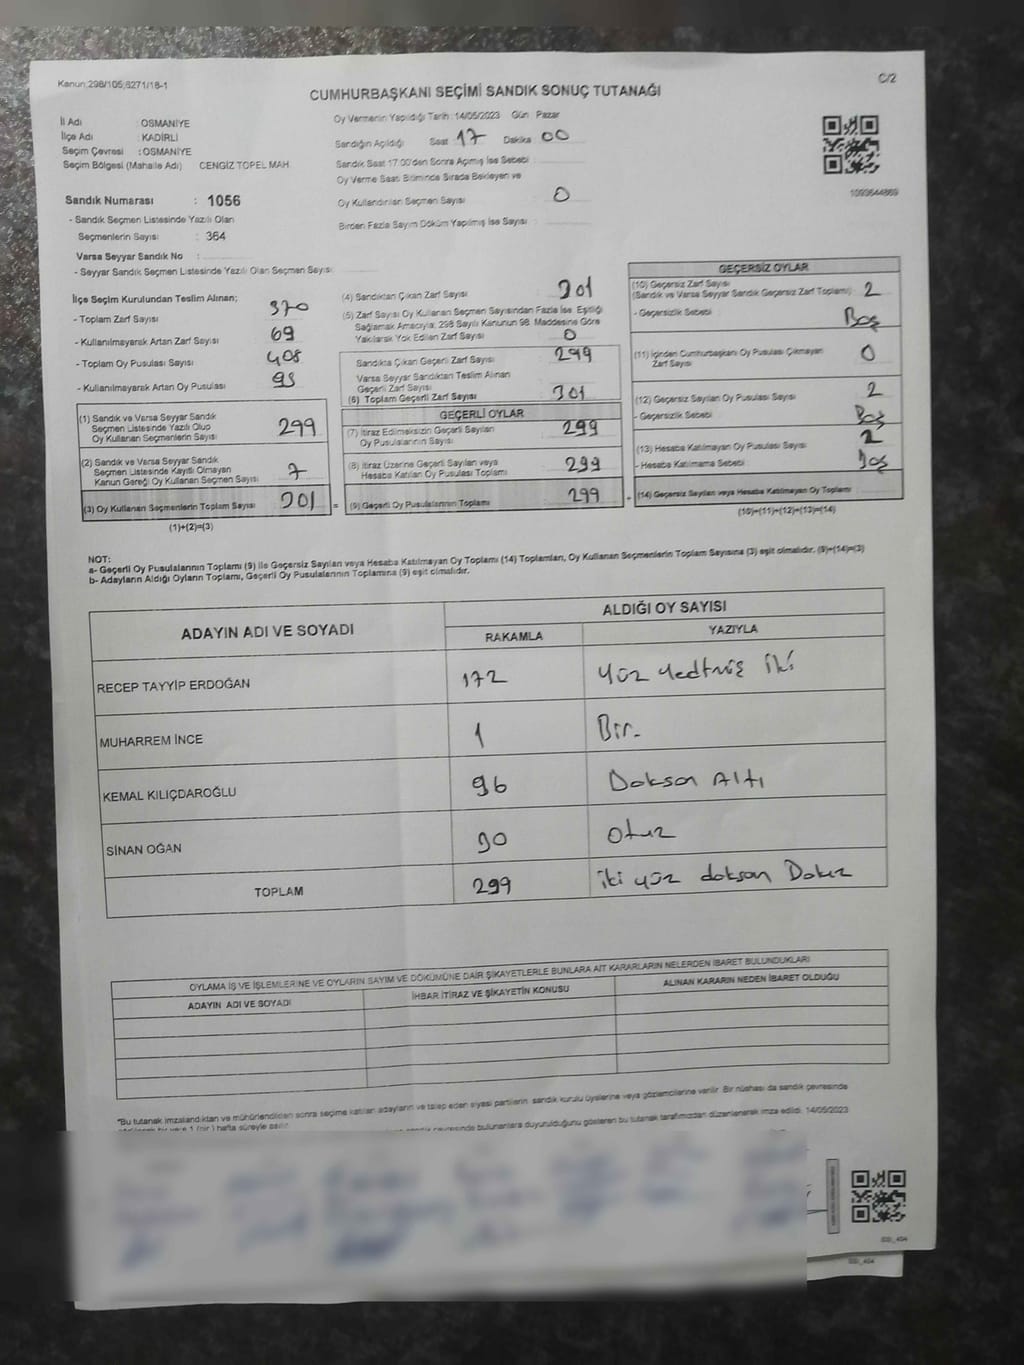 Kanun:298/105;6271/18-1
C/2
CUMHURBAŞKANI SEÇİMİ SANDIK SONUÇ TUTANAĞI
İl Adı : OSMANİYE
İlçe Adı : KADİRLİ
Seçim Çevresi : OSMANİYE
Seçim Bölgesi (Mahalle Adı) CENGİZ TOPEL MAH.
Oy Vermenin Yapıldığı Tarih :14/05/2023 Gün Pazar
Sandığın Açıldığı Saat 17 Dakika 00
Sandık Saat 17.00'den Sonra Açılmış İse Sebebi :
Oy Verme Saati Bitiminde Sırada Bekleyen ve
Oy Kullandırılan Seçmen Sayısı : 0
Birden Fazla Sayım Döküm Yapılmış İse Sayısı :
1093644869
Sandık Numarası : 1056
- Sandık Seçmen Listesinde Yazılı Olan
Seçmenlerin Sayısı : 364
Varsa Seyyar Sandık No :
- Seyyar Sandık Seçmen Listesinde Yazılı Olan Seçmen Sayısı:
İlçe Seçim Kurulundan Teslim Alınan;
- Toplam Zarf Sayısı : 370
- Kullanılmayarak Artan Zarf Sayısı : 69
- Toplam Oy Pusulası Sayısı : 408
- Kullanılmayarak Artan Oy Pusulası :
(1) Sandık ve Varsa Seyyar Sandık
Seçmen Listesinde Yazılı Olup
Oy Kullanan Seçmenlerin Sayısı : 299
(2) Sandık ve Varsa Seyyar Sandık
Seçmen Listesinde Kayıtlı Olmayan
Kanun Gereği Oy Kullanan Seçmen Sayısı :
(3) Oy Kullanan Seçmenlerin Toplam Sayısı 301
(1)+(2)=(3)
(4) Sandıktan Çıkan Zarf Sayısı : 301
(5) Zarf Sayısı Oy Kullanan Seçmen Sayısından Fazla İse, Eşitliği
Sağlamak Amacıyla; 298 Sayılı Kanunun 98. Maddesine Göre
Yakılarak Yok Edilen Zarf Sayısı : 0
Sandıkta Çıkan Geçerli Zarf Sayısı : 299
Varsa Seyyar Sandıktan Teslim Alınan
Geçerli Zarf Sayısı :
(6) Toplam Geçerli Zarf Sayısı : 301
GEÇERLİ OYLAR
(7) İtiraz Edilmeksizin Geçerli Sayılan
Oy Pusulalarının Sayısı : 299
(8) İtiraz Üzerine Geçerli Sayılan veya
Hesaba Katılan Oy Pusulası Toplamı : 299
(9) Geçerli Oy Pusulalarının Toplamı 299
GEÇERSİZ OYLAR
(10) Geçersiz Zarf Sayısı
(Sandık ve Varsa Seyyar Sandık Geçersiz Zarf Toplamı) : 2
- Geçersizlik Sebebi : Boş
(11) İçinden Cumhurbaşkanı Oy Pusulası Çıkmayan
Zarf Sayısı : 0
(12) Geçersiz Sayılan Oy Pusulası Sayısı : 2
- Geçersizlik Sebebi : Boş
(13) Hesaba Katılmayan Oy Pusulası Sayısı : 2
- Hesaba Katılmama Sebebi : Boş
(14) Geçersiz Sayılan veya Hesaba Katılmayan Oy Toplamı
(10)+(11)+(12)+(13)=(14)
NOT:
a- Geçerli Oy Pusulalarının Toplamı (9) ile Geçersiz Sayılan veya Hesaba Katılmayan Oy Toplamı (14) Toplamları, Oy Kullanan Seçmenlerin Toplam Sayısına (3) eşit olmalıdır. (9)+(14)=(3)
b- Adayların Aldığı Oyların Toplamı, Geçerli Oy Pusulalarının Toplamına (9) eşit olmalıdır.
ADAYIN ADI VE SOYADI
ALDIĞI OY SAYISI
RAKAMLA YAZIYLA
RECEP TAYYİP ERDOĞAN 172 Yüz Yetmiş İki
MUHARREM İNCE 1 Bir.
KEMAL KILIÇDAROĞLU 96 Doksan Altı
SİNAN OĞAN 30 otuz
TOPLAM 299 iki yüz doksan Dokuz
OYLAMA İŞ VE İŞLEMLERİNE VE OYLARIN SAYIM VE DÖKÜMÜNE DAİR ŞİKAYETLERLE BUNLARA AİT KARARLARIN NELERDEN İBARET BULUNDUKLARI
ADAYIN ADI VE SOYADI İHBAR İTİRAZ VE ŞİKAYETİN KONUSU ALINAN KARARIN NEDEN İBARET OLDUĞU
"Bu tutanak imzalandıktan ve mühürlendikten sonra seçime katılan adayların ve talep eden siyasi partilerin sandık kurulu üyelerine veya gözlemcilerine verilir. Bir nüshası da sandık çevresinde
bulunanlara duyurulduğunu gösteren bu tutanak tarafımızdan düzenlenerek imza edildi. 14/05/2023